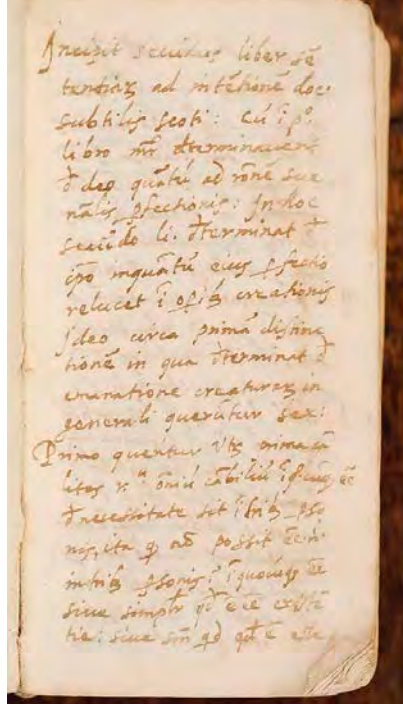 Incipit secundus liber sē
tentiaꝝ ad intētionē doc.
subtilis scoti: Cū ī p.º
libro mr̄ dterminaverit
đ deo quātū ad rōnē sue
nālis ꝑfectionis: In hoc
secūdo li. đterminat đ
ipō inquātū eius ꝑfectio
relucet ī oꝑibꝫ creationis
Ideo circa primā distinc
tionē in qua đterminat đ
emanatione creaturaꝝ in
generali querūtur sex:
Primo queritur Utꝝ prima cā
litas oīuꝫ cābiliū
đ necessitate sit ī tribꝫ ꝑso
nis, ita ꝙ nō possit ēē nˢ
in tribꝫ ꝑsonis? ī quocūqꝫ ēē
sive simplr̄ qđ ē ēē existē
tie: sive sm̄ qđ qđ ē esse